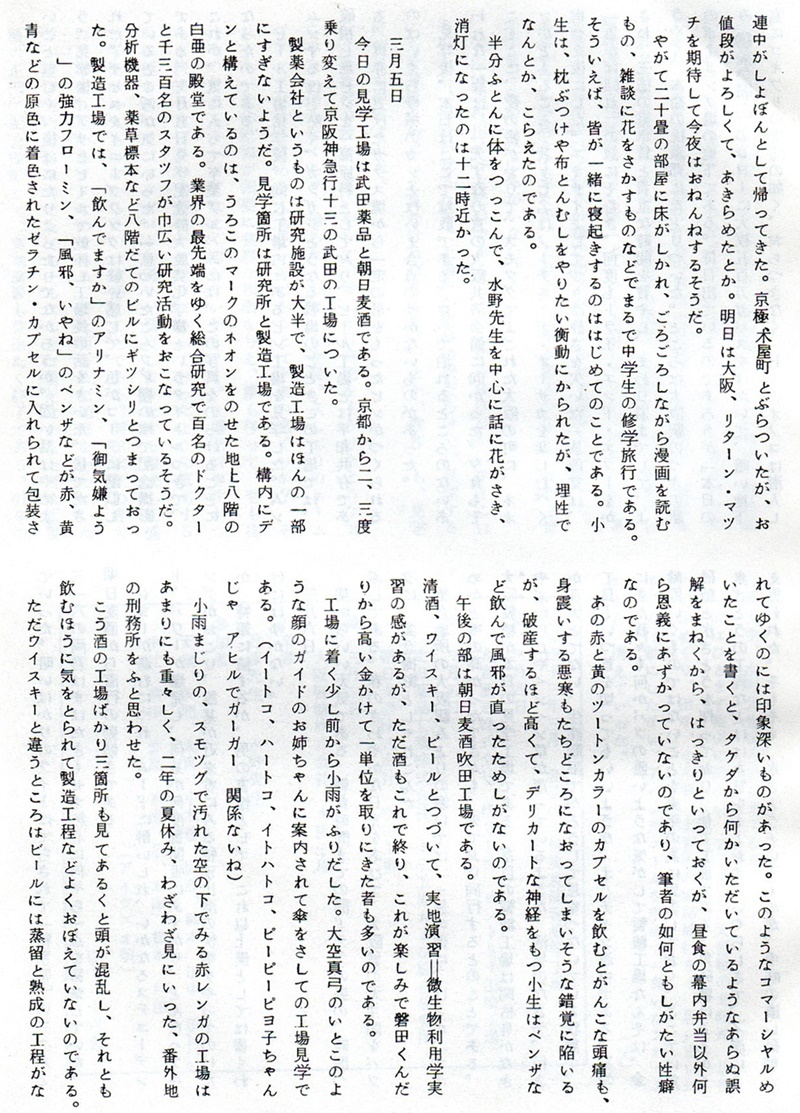 連中がしよぼんとして帰ってきた。京極木屋町とぶらついたが、お
値段がよろしくて、あきらめたとか。明日は大阪、リターン・マッ
チを期待して今夜はおねんねするそうだ。
やがて二十畳の部屋に床がしかれ、ごろごろしながら漫画を読む
もの、雑談に花をさかすものなどでまるで中学生の修学旅行である。
そういえば、皆が一緒に寝起きするのははじめてのことである。小
生は、枕ぶつけや布とんむしをやりたい衡動にかられたが、理性で
なんとか、こらえたのである。
半分ふとんに体をつっこんで、水野先生を中心に話に花がさき、
消灯になったのは十二時近かった。
三月五日
今日の見学工場は武田薬品と朝日麦酒である。京都から二、三度
乗り変えて京阪神急行十三の武田の工場についた。
製薬会社というものは研究施設が大半で、製造工場はほんの一部
にすぎないようだ。見学箇所は研究所と製造工場である。構内にデ
ンと構えているのは、うろこのマークのネオンをのせた地上八階の
白亜の殿堂である。業界の最先端をゆく総合研究で百名のドクター
と千三百名のスタッフが巾広い研究活動をおこなっているそうだ。
分析機器、薬草標本など八階だてのビルにギッシリとつまっておっ
た。製造工場では、「飲んでますか」のアリナミン、「御気嫌よう
」の強力フローミン、「風邪、いやね」のベンザなどが赤、黄
青などの原色に着色されたゼラチン・カプセルに入れられて包装さ
れてゆくのには印象深いものがあった。このようなコマーシャルめ
いたことを書くと、タケダから何かいただいているようなあらぬ誤
解をまねくから、はっきりといっておくが、昼食の幕内弁当以外何
ら恩義にあずかっていないのであり、筆者の如何ともしがたい性癖
なのである。
あの赤と黄のツートンカラーのカプセルを飲むとがんこな頭痛も、
身震いする悪寒もたちどころになおってしまいそうな錯覚に陥いる
が、破産するほど高くて、デリカートな神経をもつ小生はベンザな
ど飲んで風邪が直ったためしがないのである。
午後の部は朝日麦酒吹田工場である。
清酒、ウイスキー、ビールとつづいて、実地演習＝微生物利用学実
習の感があるが、ただ酒もこれで終り、これが楽しみで磐田くんだ
りから高い金かけて一単位を取りにきた者も多いのである。
工場に着く少し前から小雨がふりだした。大空真弓のいとこのよ
うな顔のガイドのお姉ちゃんに案内されて傘をさしての工場見学で
ある。（イートコ、ハートコ、イトハトコ、ピーピーピヨ子ちゃん
じゃ　アヒルでガーガー　関係ないね）
小雨まじりの、スモッグで汚れた空の下でみる赤レンガの工場は
あまりにも重々しく、二年の夏休み、わざわざ見にいった、番外地
の刑務所をふと思わせた。
こう酒の工場ばかり三箇所も見てあるくと頭が混乱し、それとも
飲むほうに気をとられて製造工程などよくおぼえていないのである。
ただウイスキーと違うところはビールには蒸留と熟成の工程がな